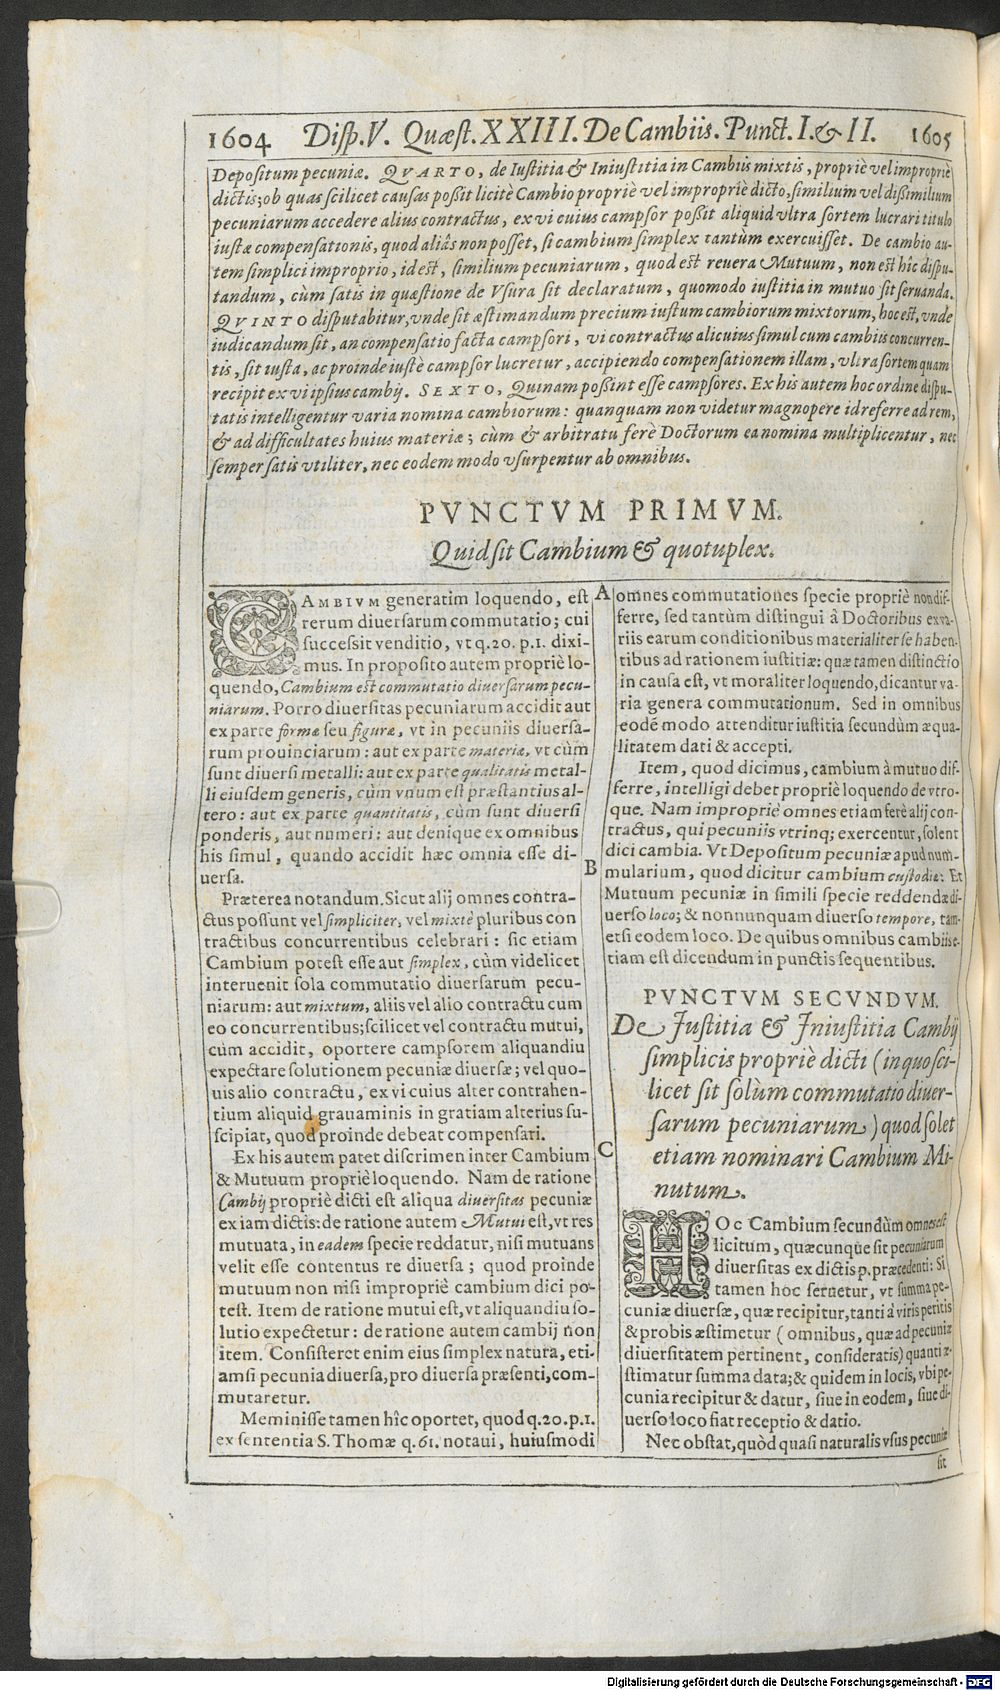 1604 Disp. V. Quæst. XXIII. De Cambiis. Punct. I. & II. 1605
Depositum pecuniæ. QVARTO, de Iustitia & Iniustitia in Cambiis mixtis, propriè vel impropriè
dictis; ob quas scilicet causas possit licitè Cambio propriè vel impropriè dicto, similium vel dissimilium
pecuniarum accedere alius contractus, ex vi cuius campsor possit aliquid vltra sortem lucrari titulo
iustæ compensationis, quod aliâs non posset, si cambium simplex tantùm exercuisset. De cambio au-
tem simplici improprio, id est, similium pecuniarum, quod est reuera Mutuum, non est hîc dispu-
tandum, cùm satis in quæstione de Vsura sit declaratum, quomodo iustitia in mutuo sit seruanda.
QVINTO disputabitur, vnde sit æstimandum precium iustum cambiorum mixtorum, hoc est, vnde
iudicandum sit, an compensatio facta campsori, vi contractus alicuius simul cum cambiis concurren-
tis, sit iusta, ac proinde iustè campsor lucretur, accipiendo compensationem illam, vltra sortem quam
recipit ex vi ipsius cambij. SEXTO, Quinam possint esse campsores. Ex his autem hoc ordine dispu-
tatis intelligentur varia nomina cambiorum: quanquam non videtur magnopere id referre ad rem,
& ad difficultates huius materiæ; cùm & arbitratu ferè Doctorum ea nomina multiplicentur, nec
semper satis vtiliter, nec eodem modo vsurpentur ab omnibus.
PVNCTVM PRIMVM.
Quid sit Cambium & quotuplex.
CAMBIVM generatim loquendo, est
rerum diuersarum commutatio; cui
successit venditio, vt q. 20. p. 1. dixi-
mus. In proposito autem propriè lo-
quendo, Cambium est commutatio diuersarum pecu-
niarum. Porro diuersitas pecuniarum accidit aut
ex parte formæ seu figuræ, vt in pecuniis diuersa-
rum prouinciarum: aut ex parte materiæ, vt cùm
sunt diuersi metalli: aut ex parte qualitatis metal-
li eiusdem generis, cùm vnum est præstantius al-
tero: aut ex parte quantitatis, cùm sunt diuersi
ponderis, aut numeri: aut denique ex omnibus
his simul, quando accidit hæc omnia esse di-
uersa.
Præterea notandum. Sicut alij omnes contra-
ctus possunt vel simpliciter, vel mixtè pluribus con
tractibus concurrentibus celebrari: sic etiam
Cambium potest esse aut simplex, cùm videlicet
interuenit sola commutatio diuersarum pecu-
niarum: aut mixtum, aliis vel alio contractu cum
eo concurrentibus; scilicet vel contractu mutui,
cùm accidit, oportere campsorem aliquandiu
expectare solutionem pecuniæ diuersæ; vel quo-
uis alio contractu, ex vi cuius alter contrahen-
tium aliquid grauaminis in gratiam alterius su-
scipiat, quod proinde debeat compensari.
Ex his autem patet discrimen inter Cambium
& Mutuum propriè loquendo. Nam de ratione
Cambij propriè dicti est aliqua diuersitas pecuniæ
ex iam dictis: de ratione autem Mutui est, vt res
mutuata, in eadem specie reddatur, nisi mutuans
velit esse contentus re diuersa; quod proinde
mutuum non nisi impropriè cambium dici po-
test. Item de ratione mutui est, vt aliquandiu so-
lutio expectetur: de ratione autem cambij non
item. Consisteret enim eius simplex natura, eti-
amsi pecunia diuersa, pro diuersa præsenti, com-
mutaretur.
Meminisse tamen hîc oportet, quod q. 20. p. 1.
ex sententia S. Thomæ q. 61. notaui, huiusmodi
A
B
C
omnes commutationes specie propriè non dif-
ferre, sed tantùm distingui à Doctoribus ex va-
riis earum conditionibus materialiter se haben-
tibus ad rationem iustitiæ: quæ tamen distinctio
in causa est, vt moraliter loquendo, dicantur va-
ria genera commutationum. Sed in omnibus
eodē modo attenditur iustitia secundùm æqua-
litatem dati & accepti.
Item, quod dicimus, cambium à mutuo dif-
ferre, intelligi debet propriè loquendo de vtro-
que. Nam impropriè omnes etiam ferè alij con-
tractus, qui pecuniis vtrinq; exercentur, solent
dici cambia. Vt Depositum pecuniæ apud num-
mularium, quod dicitur cambium custodiæ: Et
Mutuum pecuniæ in simili specie reddendæ di-
uerso loco; & nonnunquam diuerso tempore, tam-
etsi eodem loco. De quibus omnibus cambiis e-
tiam est dicendum in punctis sequentibus.
PVNCTVM SECVNDVM.
De Iustitia & Iniustitia Cambij
simplicis propriè dicti (in quo sci-
licet sit solùm commutatio diuer-
sarum pecuniarum) quod solet
etiam nominari Cambium Mi-
nutum.
HOC Cambium secundùm omnes est
licitum, quæcunque sit pecuniarum
diuersitas ex dictis p. præcedenti: Si
tamen hoc seruetur, vt summa pe-
cuniæ diuersæ, quæ recipitur, tanti à viris peritis
& probis æstimetur (omnibus, quæ ad pecuniæ
diuersitatem pertinent, consideratis) quanti æ-
stimatur summa data; & quidem in locis, vbi pe-
cunia recipitur & datur, siue in eodem, siue di-
uerso loco fiat receptio & datio.
Nec obstat, quòd quasi naturalis vsus pecuniæ
sit
Digitalisierung gefördert durch die Deutsche Forschungsgemeinschaft - DFG